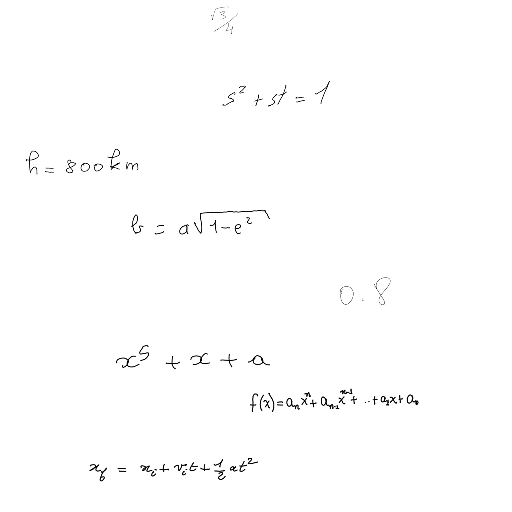 √3/4
s² + st = 1
h = 800 km
b = a√(1-e²)
0.8
x⁵ + x + a
f(x) = aₙxⁿ + aₙ₋₁xⁿ⁻¹ + ... + a₁x + a₀
x_f = x_i + v_i t + 1/2 at²